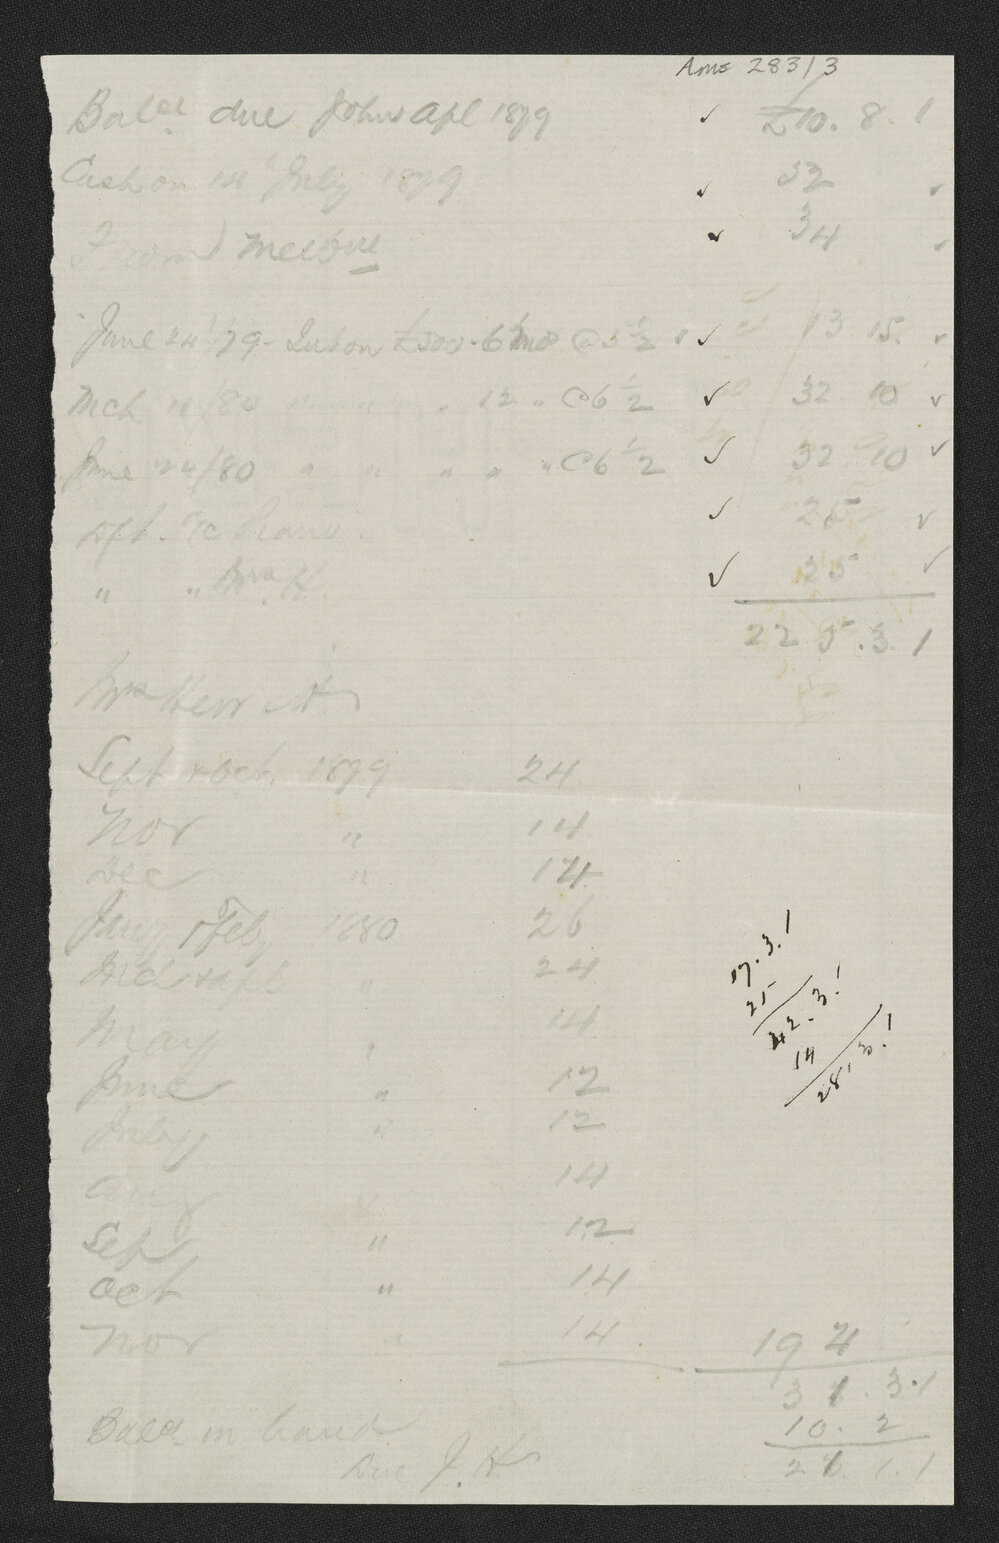 Ams 283/3
Balce due John apl 1879 ✓ £10. 8. 1
Cash on 14 July 1879 ✓ 52 ✓
✓ 34 ✓
June 24/79 - £500 - 6 mos @ 5 1/2 ✓ 13 15. ✓
Mch /80 " " " 12 " @ 6 1/2 ✓ 32. 10 ✓
June 24/80 " " " " " @ 6 1/2 ✓ 32. 10 ✓
Dft. ✓ 25 ✓
" " Mrs K ✓ 25 ✓
225. 3. 1
Mrs Kerr
Sept & Oct. 1879 24
Nov " 14
Dec " 14
Jany & Feby 1880 26
Mch & apl " 24
May " 14
June " 12
July " 12
Aug " 14
Sep " 12
Oct " 14
Nov " 14 194
17. 3. 1
25
42. 3. 1
14
28. 3. 1
31. 3. 1
Balce in hand 10. 2
Due J. K 1. 1